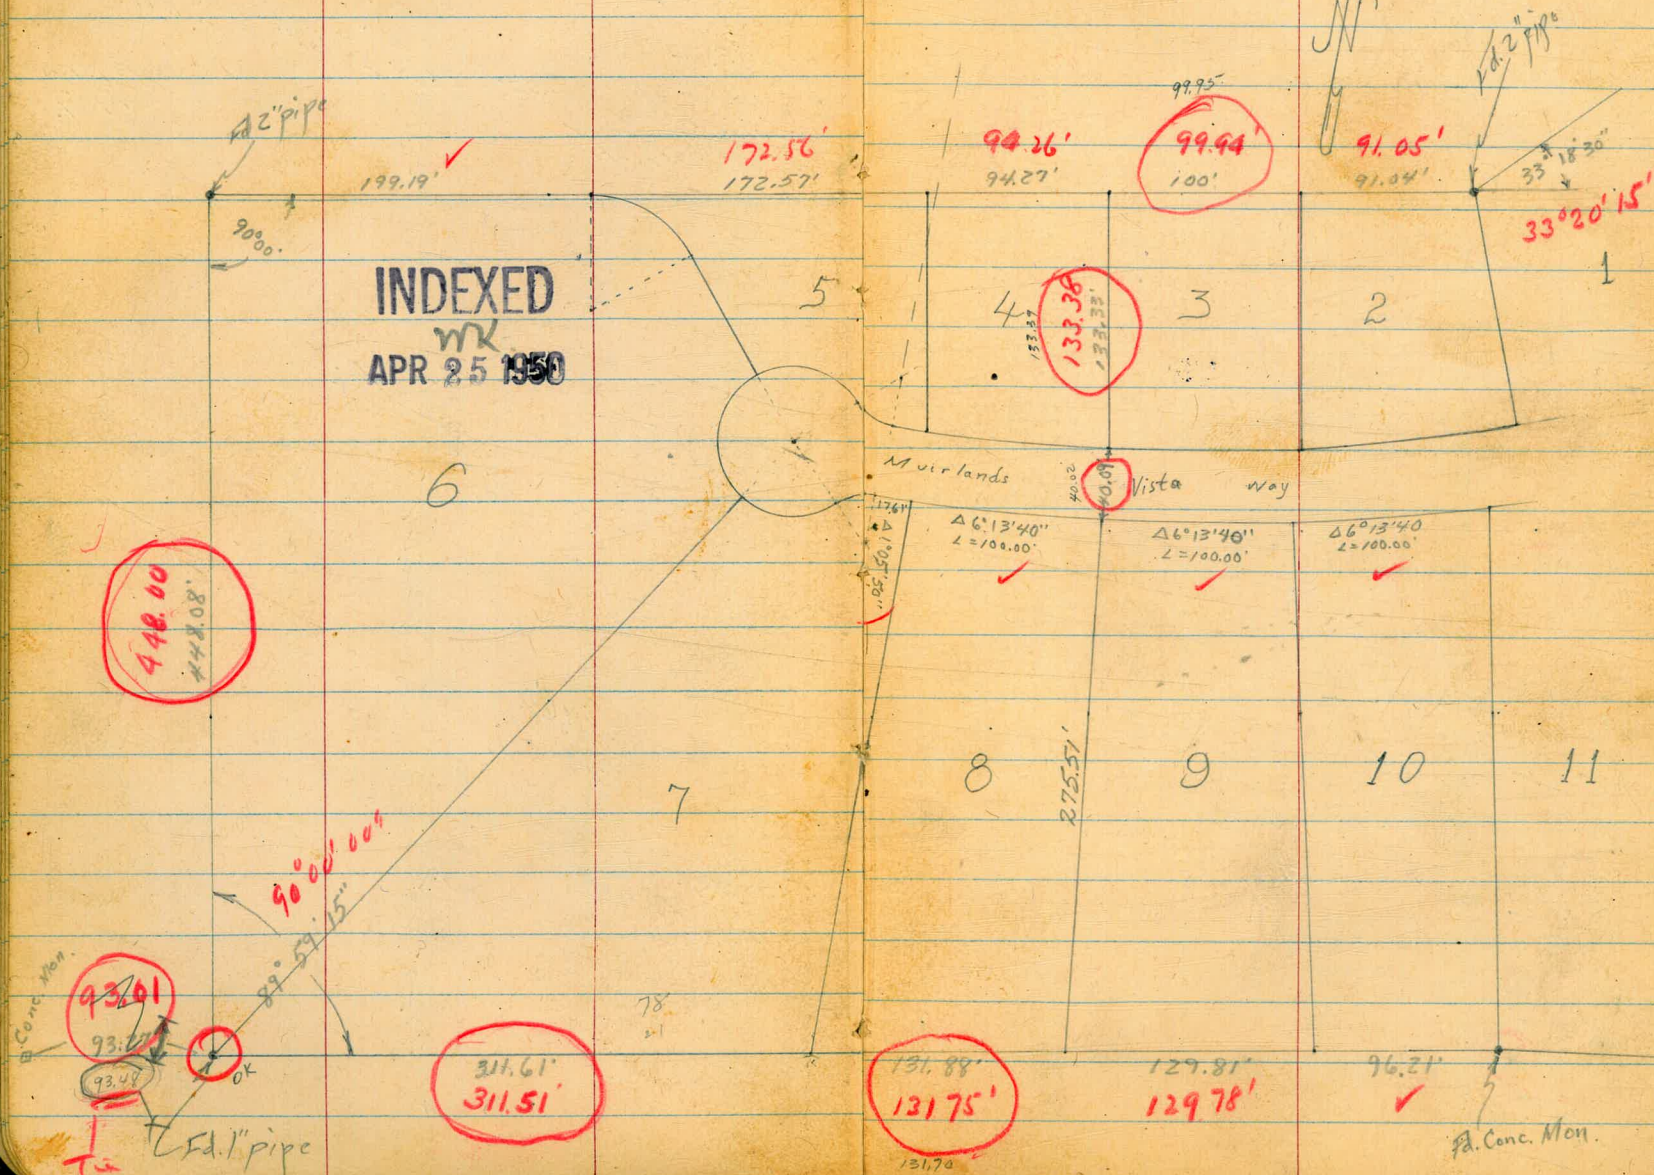 N
Fd. 2" pipe
Fd 2" pipe
99.95
172.56'
94.26'
99.94'
91.05'
33° 18' 30"
199.19'
172.57'
94.27'
100'
91.04'
33°20'15"
90°00'
INDEXED
WK
APR 25 1950
5
4
133.39
133.38
133.33'
3
2
1
6
Muirlands Vista Way
40.02
40.09
17.61'
Δ 1°05'50"
Δ 6°13'40"
L=100.00'
Δ 6°13'40"
L=100.00'
Δ 6°13'40
L=100.00'
448.00
448.08'
7
8
275.51'
9
10
11
90°00'00"
89° 59' 15"
Conc. Mon.
93.01
93.27
93.48
OK
78
311.61'
311.51'
131.88'
131.75'
131.70
129.81'
129.78'
96.21'
Fd. 1" pipe
Fd. Conc. Mon.